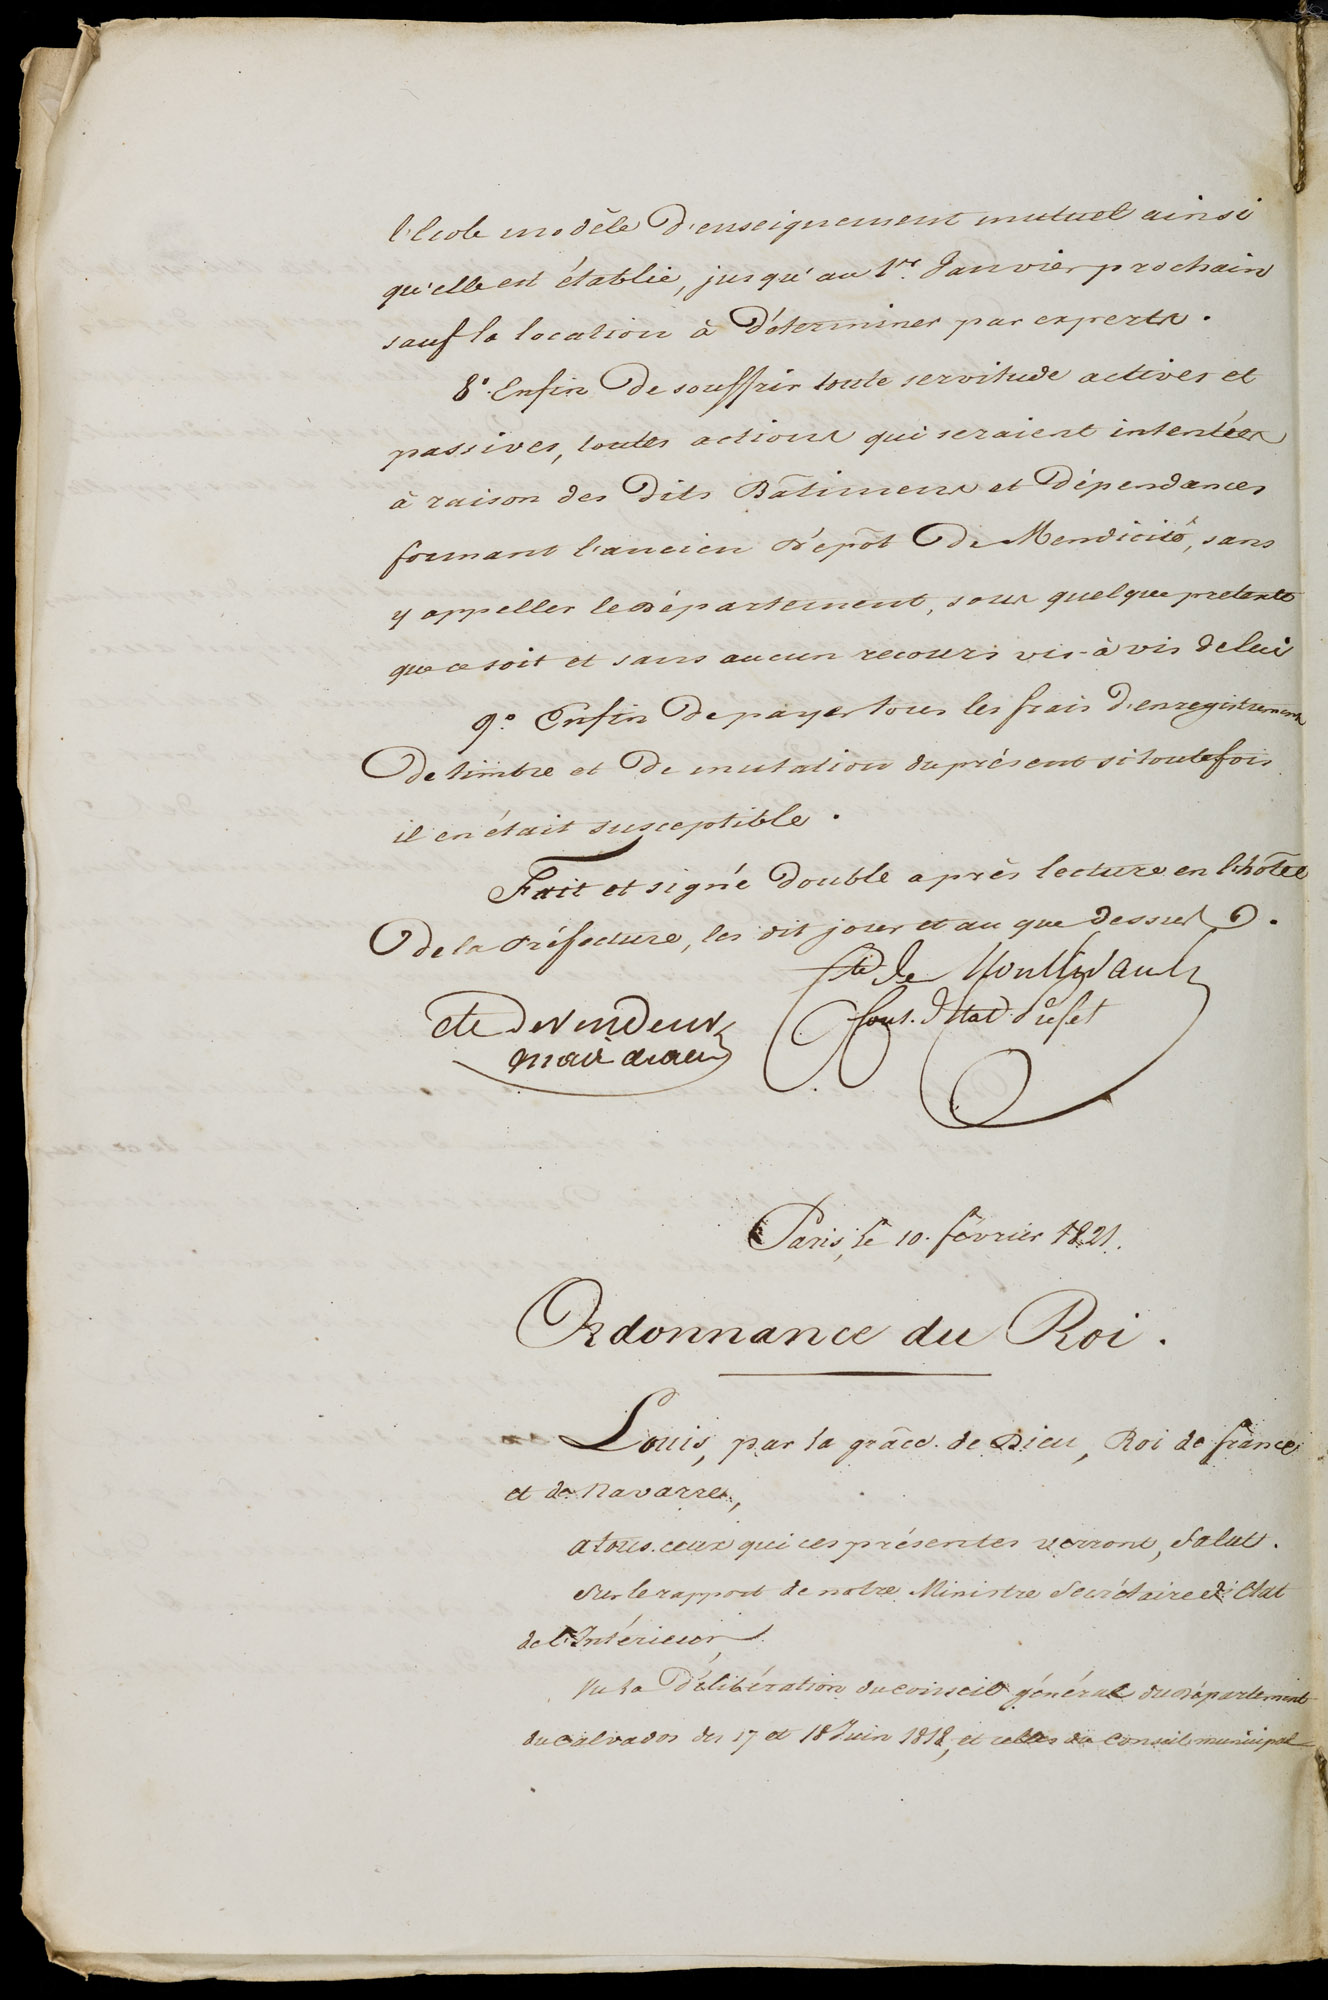 l'École modèle d'enseignement mutuel ainsi
qu'elle est établie, jusqu'au 1er. Janvier prochain
sauf la location à déterminer par experts.
8°. Enfin de souffrir toute servitude actives et
passives, toutes actions qui seraient intentées
à raison des dits Bâtimens et Dépendances
formant l'ancien Dépôt de Mendicité, sans
y appeller le Département, sous quelque pretexte
que ce soit et sans aucun recours vis-à vis de lui
9°. Enfin de payer tous les frais d'enregistrement
de timbre et de mutation du présent si toutefois
il en était susceptible.
Fait et signé double après lecture en l'hôtel
de la Préfecture, les dit jour et au que dessus.
Cte de Montlivault
Cons. d'Etat Préfet
Cte de Vendeuvre
Paris, le 10. février 1821.
Ordonnance du Roi.
Louis, par la grâce de Dieu, Roi de france
et de Navarre,
a tous ceux qui ces présentes verront, Salut.
Sur le rapport de notre Ministre Secrétaire d'Etat
de l'Intérieur,
Vu la Délibération du conseil général du Département
du Calvados des 17 et 18 Juin 1818, et celles du Conseil municipal